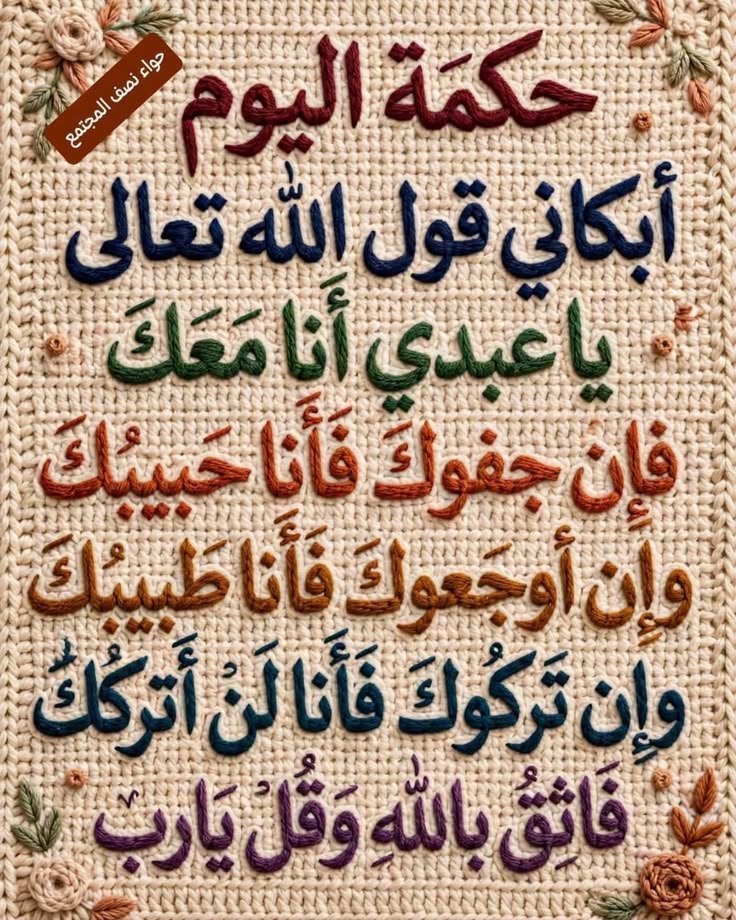 حواء نصف المجتمع
حكمَة اليوم
أبكاني قول الله تعالى
ياعبدي أنَا مَعَكَ
فإن جفوكَ فَأَنا حَبيبُكَ
وإن أوجَعوكَ فَأَنا طَبيبُكَ
وإن تَركُوكَ فَأَنا لَنْ أَتركُكَ
فَاثِقُ بِاللهِ وَقُلْ يَارب